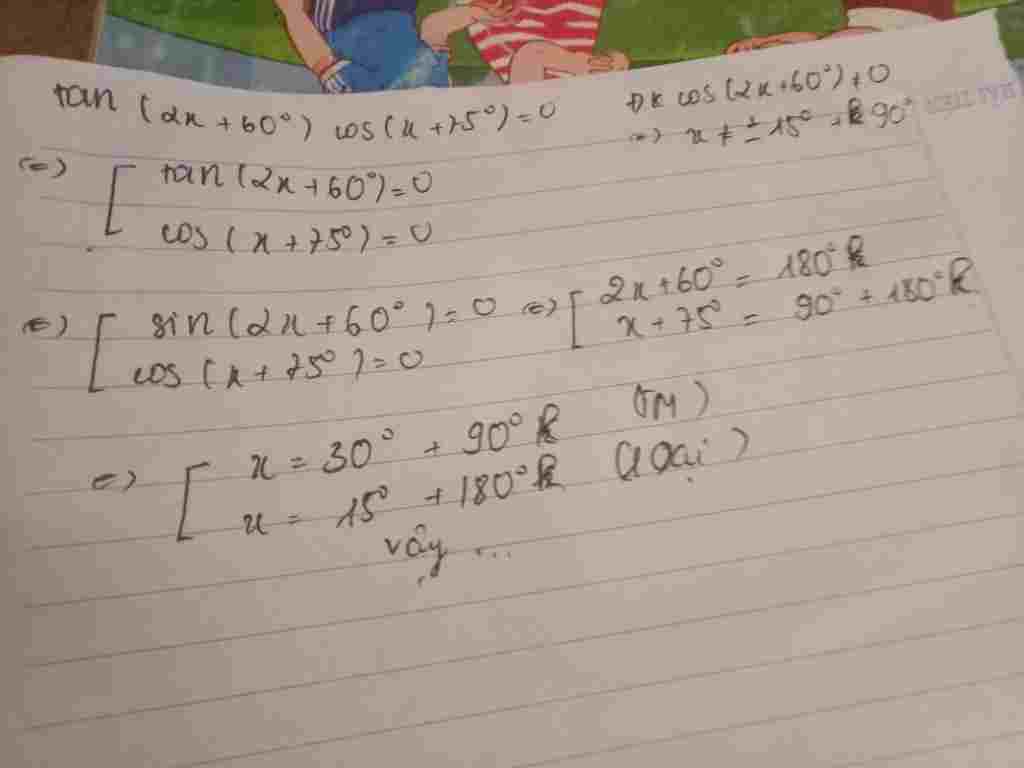 tan (2x+60°) cos(x+75°)=0
ĐK cos(2x+60°)≠0
(=) x ≠ ± 15° + k90°
(=) [ tan(2x+60°)=0
cos(x+75°)=0
(=) [ sin(2x+60°)=0 (=) [ 2x+60° = 180°k
cos(x+75°)=0 x+75° = 90°+180°k
(=) [ x = 30° + 90°k (TM)
x = 15° + 180°k (loại)
vậy ...